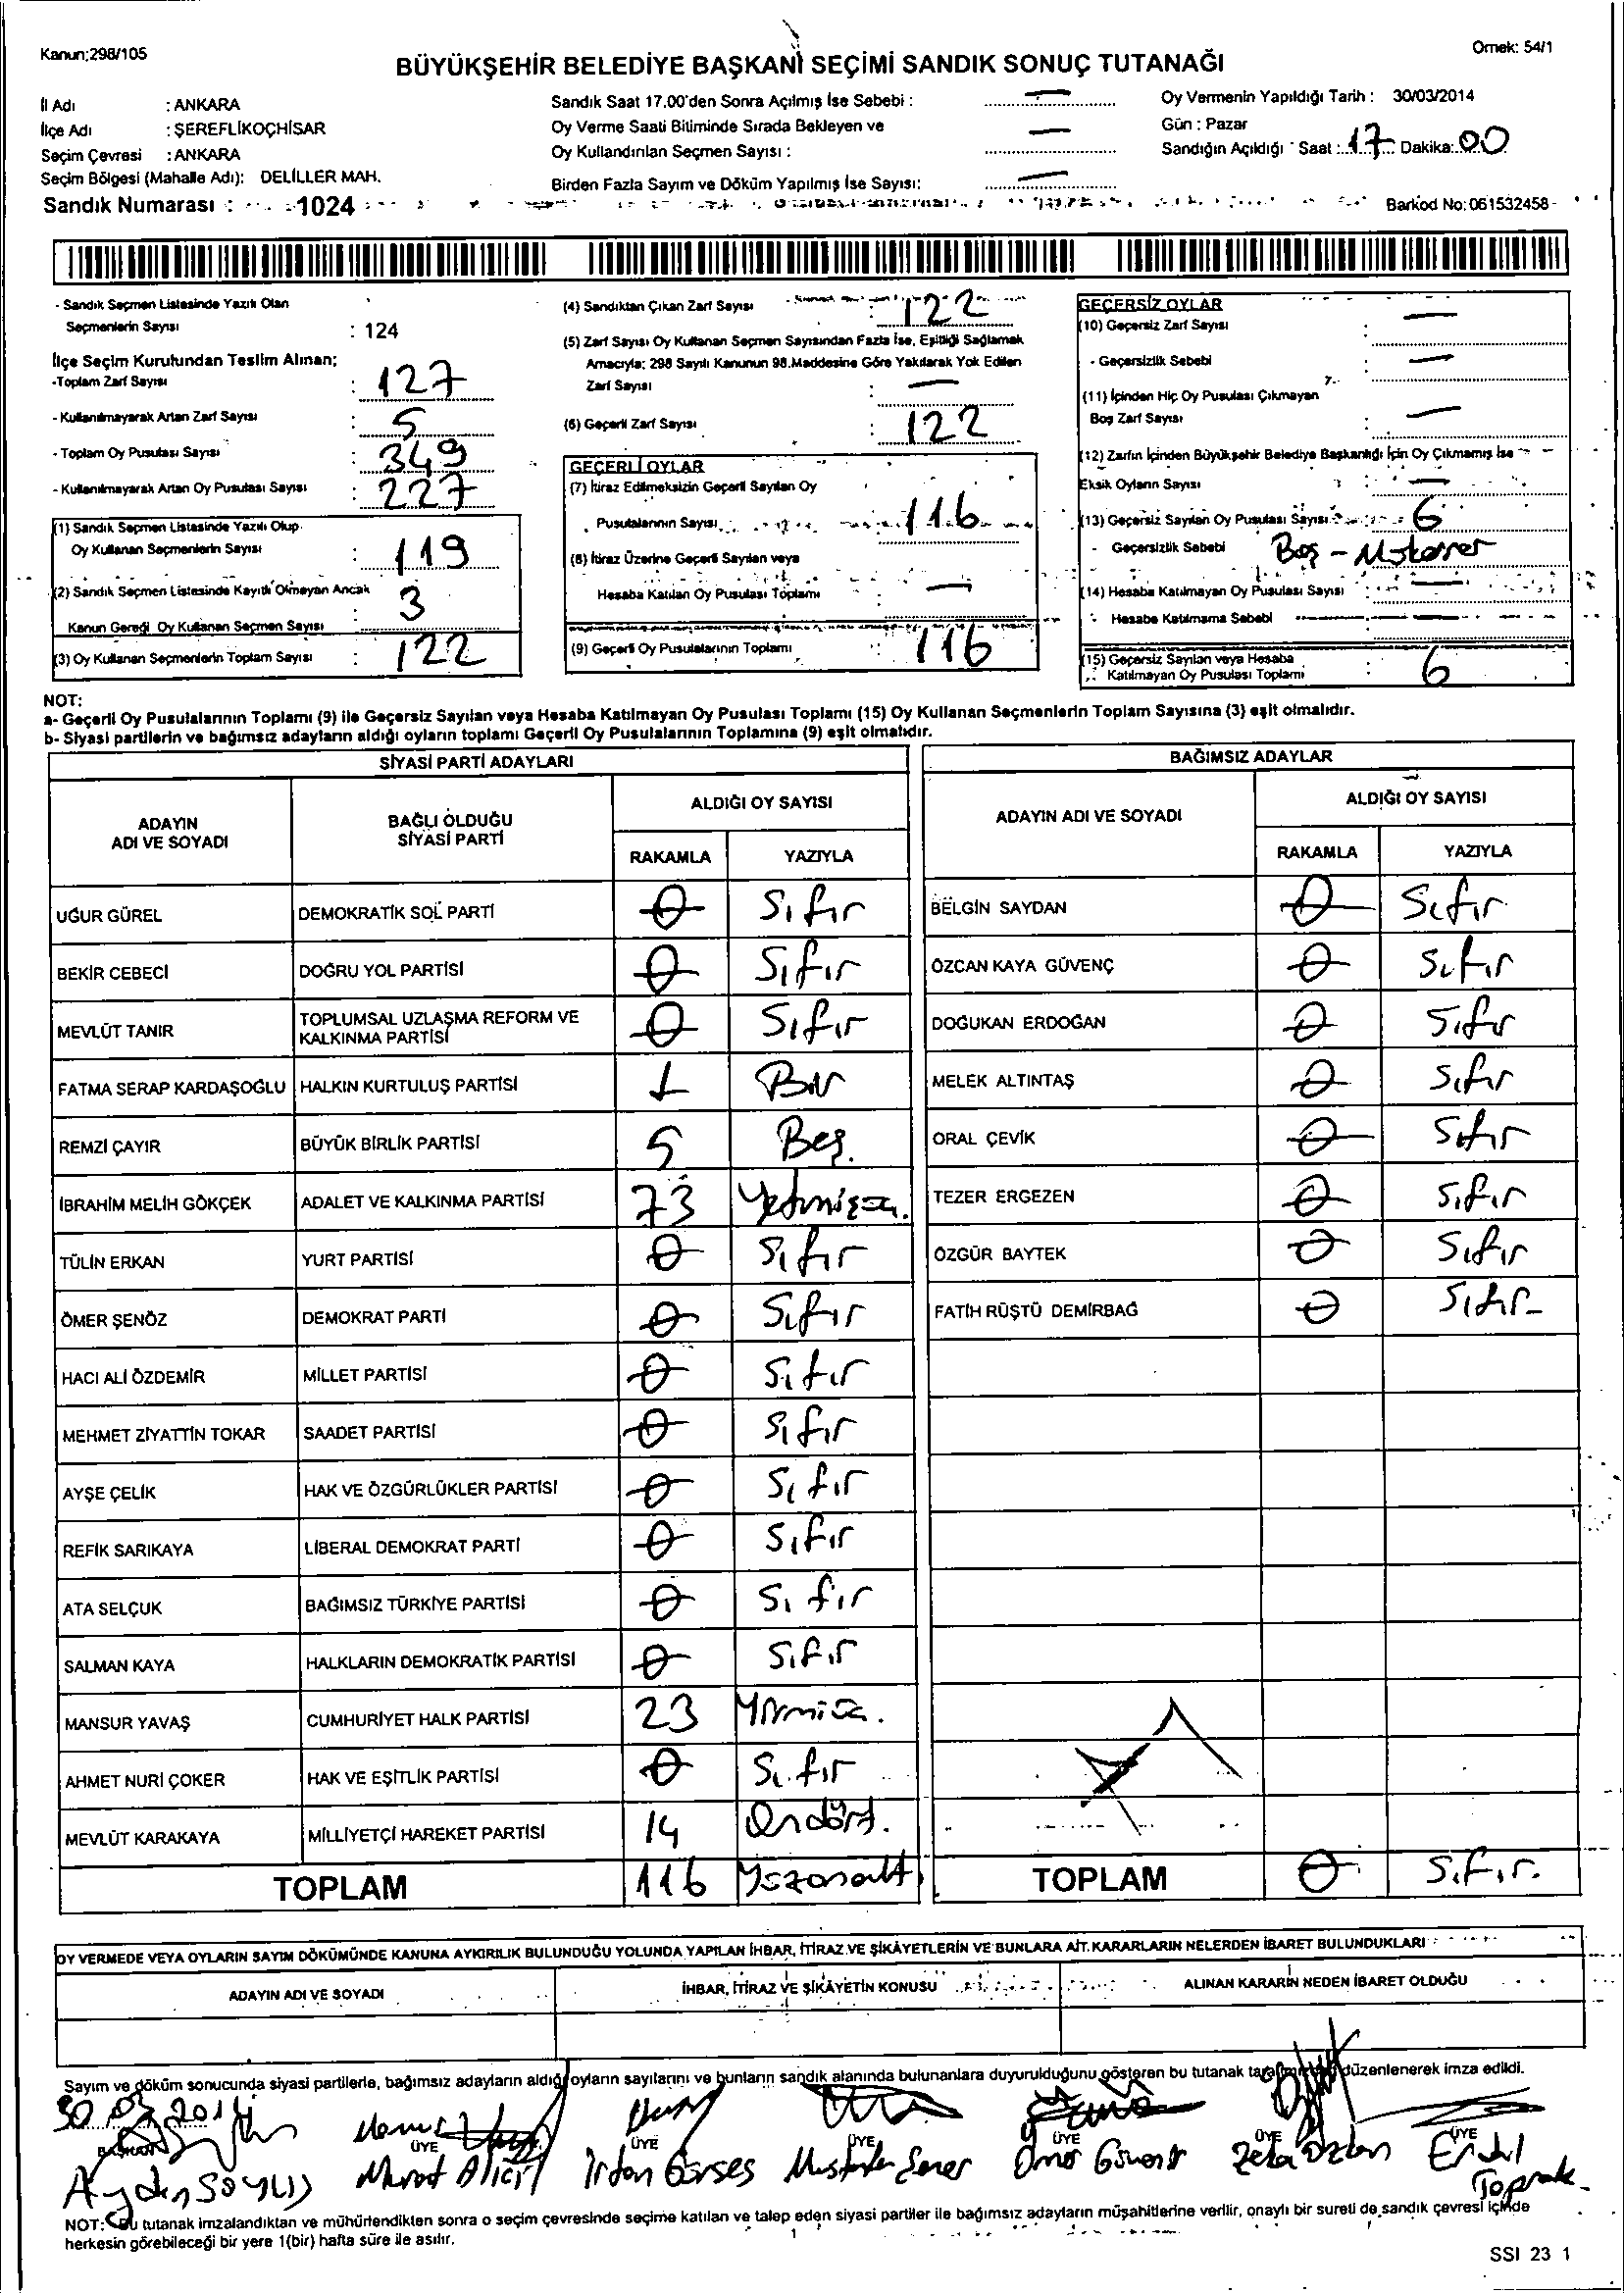 Kanun;298/105
Örnek: 54/1
BÜYÜKŞEHİR BELEDİYE BAŞKANI SEÇİMİ SANDIK SONUÇ TUTANAĞI
İl Adı : ANKARA
İlçe Adı : ŞEREFLİKOÇHİSAR
Seçim Çevresi : ANKARA
Seçim Bölgesi (Mahalle Adı): DELİLLER MAH.
Sandık Numarası : 1024
Sandık Saat 17.00'den Sonra Açılmış İse Sebebi : —
Oy Verme Saati Bitiminde Sırada Bekleyen ve
Oy Kullandırılan Seçmen Sayısı : —
Birden Fazla Sayım ve Döküm Yapılmış İse Sayısı: —
Oy Vermenin Yapıldığı Tarih : 30/03/2014
Gün : Pazar
Sandığın Açıldığı Saat : 17 Dakika: 00
Barkod No: 061532458
- Sandık Seçmen Listesinde Yazılı Olan
Seçmenlerin Sayısı : 124
İlçe Seçim Kurulundan Teslim Alınan;
-Toplam Zarf Sayısı : 127
- Kullanılmayarak Artan Zarf Sayısı : 5
- Toplam Oy Pusulası Sayısı : 349
- Kullanılmayarak Artan Oy Pusulası Sayısı : 227
(1) Sandık Seçmen Listesinde Yazılı Olup
Oy Kullanan Seçmenlerin Sayısı : 119
(2) Sandık Seçmen Listesinde Kayıtlı Olmayan Ancak
Kanun Gereği Oy Kullanan Seçmen Sayısı 3
(3) Oy Kullanan Seçmenlerin Toplam Sayısı : 122
(4) Sandıktan Çıkan Zarf Sayısı : 122
(5) Zarf Sayısı Oy Kullanan Seçmen Sayısından Fazla İse, Eşitliği Sağlamak
Amacıyla; 298 Sayılı Kanunun 98.Maddesine Göre Yakılarak Yok Edilen
Zarf Sayısı : —
(6) Geçerli Zarf Sayısı : 122
GEÇERLİ OYLAR
(7) İtiraz Edilmeksizin Geçerli Sayılan Oy
Pusulalarının Sayısı 116
(8) İtiraz Üzerine Geçerli Sayılan veya
Hesaba Katılan Oy Pusulası Toplamı : —
(9) Geçerli Oy Pusulalarının Toplamı : 116
GEÇERSİZ OYLAR
(10) Geçersiz Zarf Sayısı : —
- Geçersizlik Sebebi : —
(11) İçinden Hiç Oy Pusulası Çıkmayan
Boş Zarf Sayısı : —
(12) Zarfın İçinden Büyükşehir Belediye Başkanlığı İçin Oy Çıkmamış İse
Eksik Oyların Sayısı : —
(13) Geçersiz Sayılan Oy Pusulası Sayısı : 6
- Geçersizlik Sebebi Boş - Mükerrer
(14) Hesaba Katılmayan Oy Pusulası Sayısı : —
- Hesaba Katılmama Sebebi —
(15) Geçersiz Sayılan veya Hesaba
Katılmayan Oy Pusulası Toplamı : 6
NOT:
a- Geçerli Oy Pusulalarının Toplamı (9) ile Geçersiz Sayılan veya Hesaba Katılmayan Oy Pusulası Toplamı (15) Oy Kullanan Seçmenlerin Toplam Sayısına (3) eşit olmalıdır.
b- Siyasi partilerin ve bağımsız adayların aldığı oyların toplamı Geçerli Oy Pusulalarının Toplamına (9) eşit olmalıdır.
SİYASİ PARTİ ADAYLARI
ADAYIN ADI VE SOYADI
BAĞLI OLDUĞU SİYASİ PARTİ
ALDIĞI OY SAYISI
RAKAMLA YAZIYLA
UĞUR GÜREL DEMOKRATİK SOL PARTİ 0 Sıfır
BEKİR CEBECİ DOĞRU YOL PARTİSİ 0 Sıfır
MEVLÜT TANIR TOPLUMSAL UZLAŞMA REFORM VE KALKINMA PARTİSİ 0 Sıfır
FATMA SERAP KARDAŞOĞLU HALKIN KURTULUŞ PARTİSİ 1 Bir
REMZİ ÇAYIR BÜYÜK BİRLİK PARTİSİ 5 Beş.
İBRAHİM MELİH GÖKÇEK ADALET VE KALKINMA PARTİSİ 73 Yetmişüç.
TÜLİN ERKAN YURT PARTİSİ 0 Sıfır
ÖMER ŞENÖZ DEMOKRAT PARTİ 0 Sıfır
HACI ALİ ÖZDEMİR MİLLET PARTİSİ 0 Sıfır
MEHMET ZİYATTİN TOKAR SAADET PARTİSİ 0 Sıfır
AYŞE ÇELİK HAK VE ÖZGÜRLÜKLER PARTİSİ 0 Sıfır
REFİK SARIKAYA LİBERAL DEMOKRAT PARTİ 0 Sıfır
ATA SELÇUK BAĞIMSIZ TÜRKİYE PARTİSİ 0 Sıfır
SALMAN KAYA HALKLARIN DEMOKRATİK PARTİSİ 0 Sıfır
MANSUR YAVAŞ CUMHURİYET HALK PARTİSİ 23 Yirmiüç.
AHMET NURİ ÇOKER HAK VE EŞİTLİK PARTİSİ 0 Sıfır
MEVLÜT KARAKAYA MİLLİYETÇİ HAREKET PARTİSİ 14 Ondört.
TOPLAM 116 Yüzonaltı
BAĞIMSIZ ADAYLAR
ADAYIN ADI VE SOYADI
ALDIĞI OY SAYISI
RAKAMLA YAZIYLA
BELGİN SAYDAN 0 Sıfır
ÖZCAN KAYA GÜVENÇ 0 Sıfır
DOĞUKAN ERDOĞAN 0 Sıfır
MELEK ALTINTAŞ 0 Sıfır
ORAL ÇEVİK 0 Sıfır
TEZER ERGEZEN 0 Sıfır
ÖZGÜR BAYTEK 0 Sıfır
FATİH RÜŞTÜ DEMİRBAĞ 0 Sıfır
TOPLAM 0 Sıfır.
OY VERMEDE VEYA OYLARIN SAYIM DÖKÜMÜNDE KANUNA AYKIRILIK BULUNDUĞU YOLUNDA YAPILAN İHBAR, İTİRAZ VE ŞİKÂYETLERİN VE BUNLARA AİT KARARLARIN NELERDEN İBARET BULUNDUKLARI
ADAYIN ADI VE SOYADI
İHBAR, İTİRAZ VE ŞİKÂYETİN KONUSU
ALINAN KARARIN NEDEN İBARET OLDUĞU
Sayım ve döküm sonucunda siyasi partilerle, bağımsız adayların aldığı oyların sayılarını ve bunların sandık alanında bulunanlara duyurulduğunu gösteren bu tutanak düzenlenerek imza edildi.
30 03 2014
BAŞKAN ÜYE ÜYE ÜYE ÜYE ÜYE ÜYE
Murat İrfan Gürses Mustafa Şener Ömer Zeka Özdan Erdal Toprak
NOT: Bu tutanak imzalandıktan ve mühürlendikten sonra o seçim çevresinde seçime katılan ve talep eden siyasi partiler ile bağımsız adayların müşahitlerine verilir, onaylı bir sureti de sandık çevresi içinde
herkesin görebileceği bir yere 1(bir) hafta süre ile asılır.
SSI 23 1